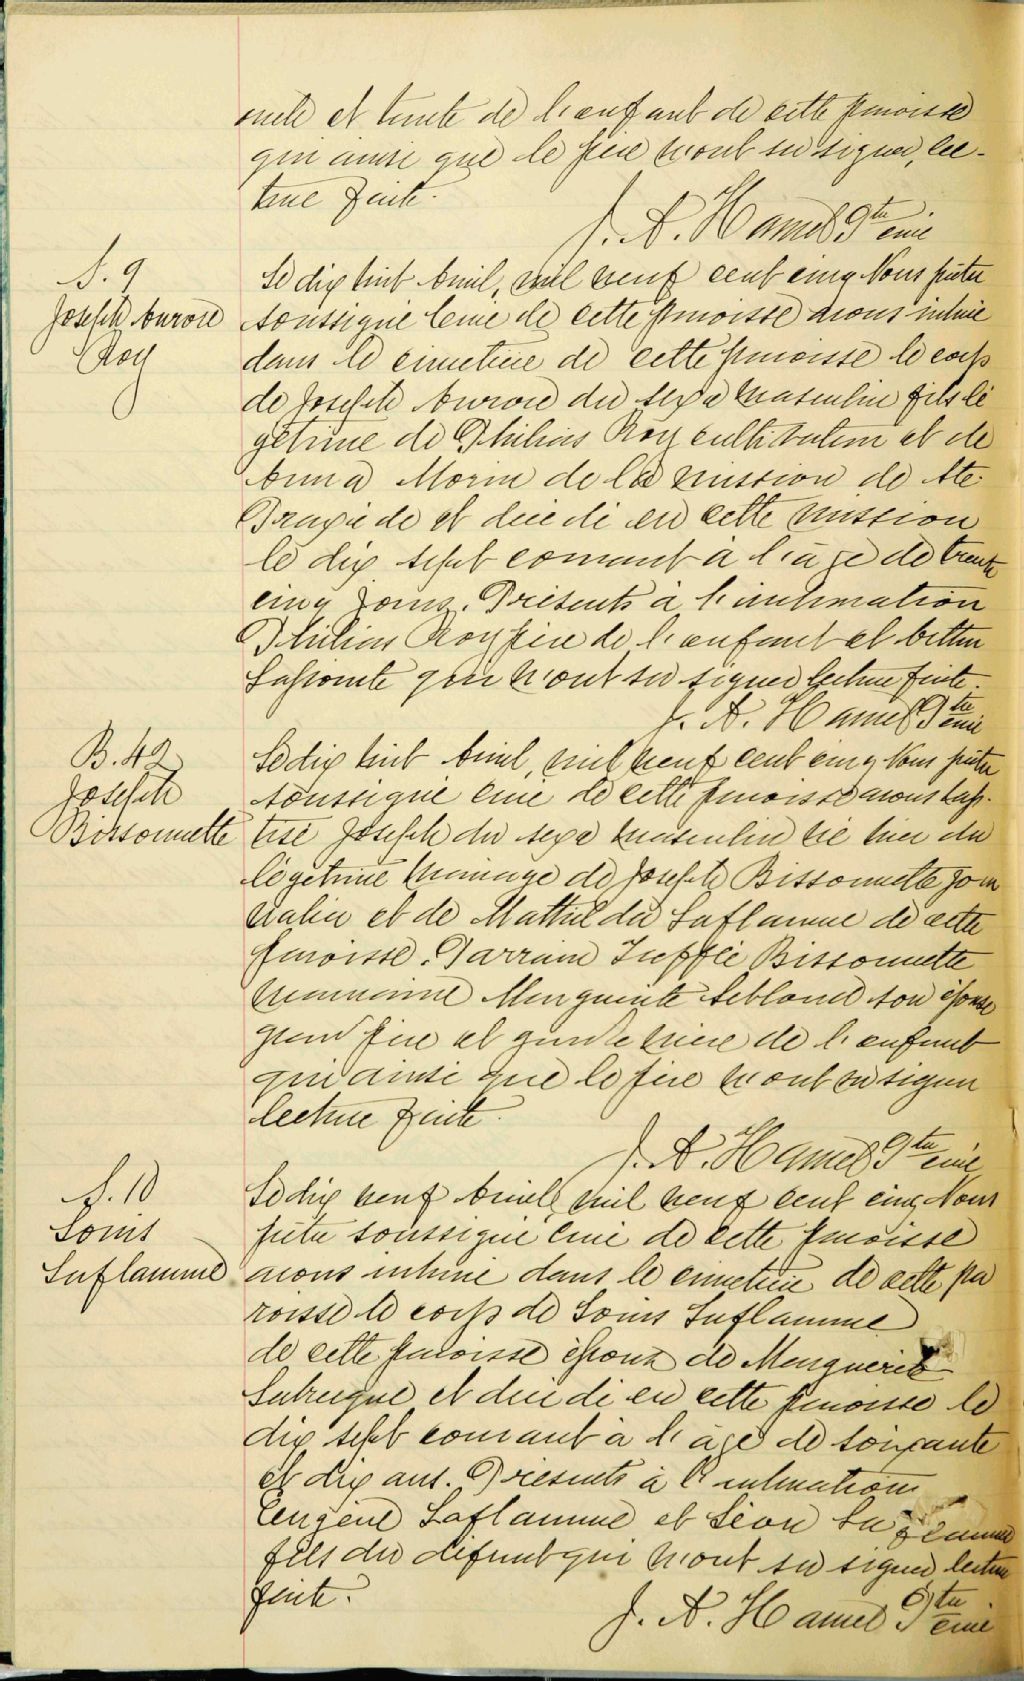 oncle et tante de l'enfant de cette paroisse
qui ainsi que le père n'ont su signer, lec-
ture faite.
J. A. Hamel Ptre curé
S. 9
Joseph Aurore
Roy
Le dix huit Avril, mil neuf cent cinq Nous prêtre
soussigné Curé de cette paroisse avons inhumé
dans le cimetière de cette paroisse le corps
de Joseph Aurore du sexe masculin fils lé
gitime de Philias Roy cultivateur et de
Anna Morin de la mission de Ste
Praxède et décédé en cette mission
le dix sept courant à l'âge de trente
cinq jours. Présents à l'inhumation
Philias Roy père de l'enfant et
Lapointe qui n'ont su signer lecture faite.
J. A. Hamel Ptre curé
B. 42
Joseph
Bissonnette
Le dix huit Avril, mil neuf cent cinq Nous prêtre
soussigné curé de cette paroisse avons bap-
tisé Joseph du sexe masculin né hier du
légitime mariage de Joseph Bissonnette jour
nalier et de Mathilda Laflamme de cette
paroisse. Parrain Trefflé Bissonnette
marraine Marguerite Leblond son épouse
grand père et grande mère de l'enfant
qui ainsi que le père n'ont su signer
lecture faite.
J. A. Hamel Ptre curé
S. 10
Louis
Laflamme
Le dix neuf Avril, mil neuf cent cinq Nous
prêtre soussigné curé de cette paroisse
avons inhumé dans le cimetière de cette pa
roisse le corps de Louis Laflamme
de cette paroisse époux de Marguerite
Labrecque et décédé en cette paroisse le
dix sept courant à l'âge de soixante
et dix ans. Présents à l'inhumation
Eugène Laflamme et Léon Laflamme
fils du défunt qui n'ont su signer lecture
faite.
J. A. Hamel Ptre curé